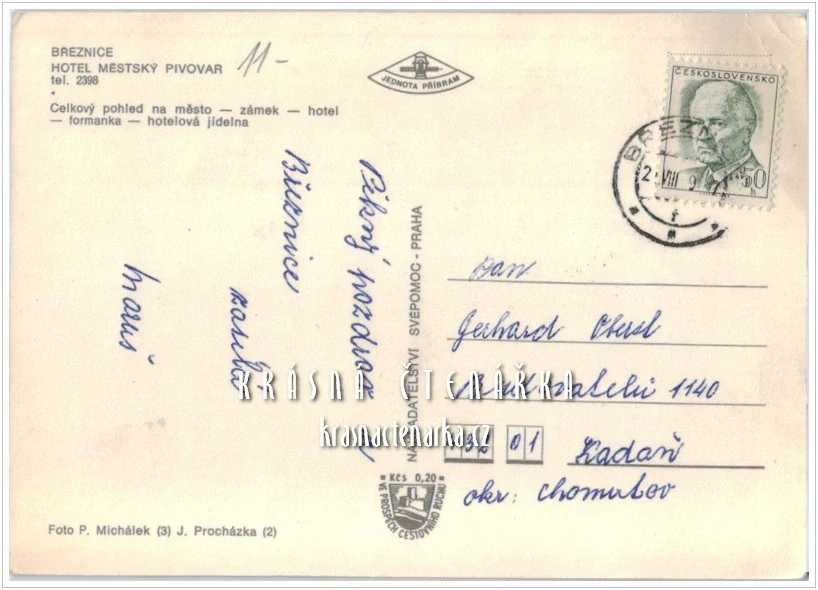 BŘEZNICE
HOTEL MĚSTSKÝ PIVOVAR
tel. 2398
11-
Celkový pohled na město — zámek — hotel
— formanka — hotelová jídelna
JEDNOTA PŘÍBRAM
ČESKOSLOVENSKO
60
h
BŘEZNI
2. VIII 9
Pěkný pozdrav z
Březnice
zasílá
NAKLADATELSTVÍ SVÉPOMOC - PRAHA
Pan
Gerhard
1140
432 01 Kadaň
okr: Chomutov
KRÁSNÁ ČTENÁŘKA
krasnactenarka.cz
Kčs 0,20
VE PROSPĚCH CESTOVNÍHO RUCHU
Foto P. Michálek (3) J. Procházka (2)